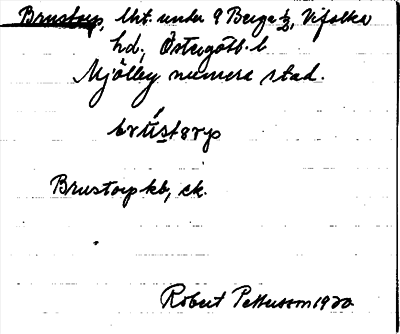 Brustorp, lht. under 9 Berga ½, Vifolka
hd, Östergötl. l
Mjölby numera stad.
brústorp
Brustorp kb, ek.
Robert Pettersson 1920